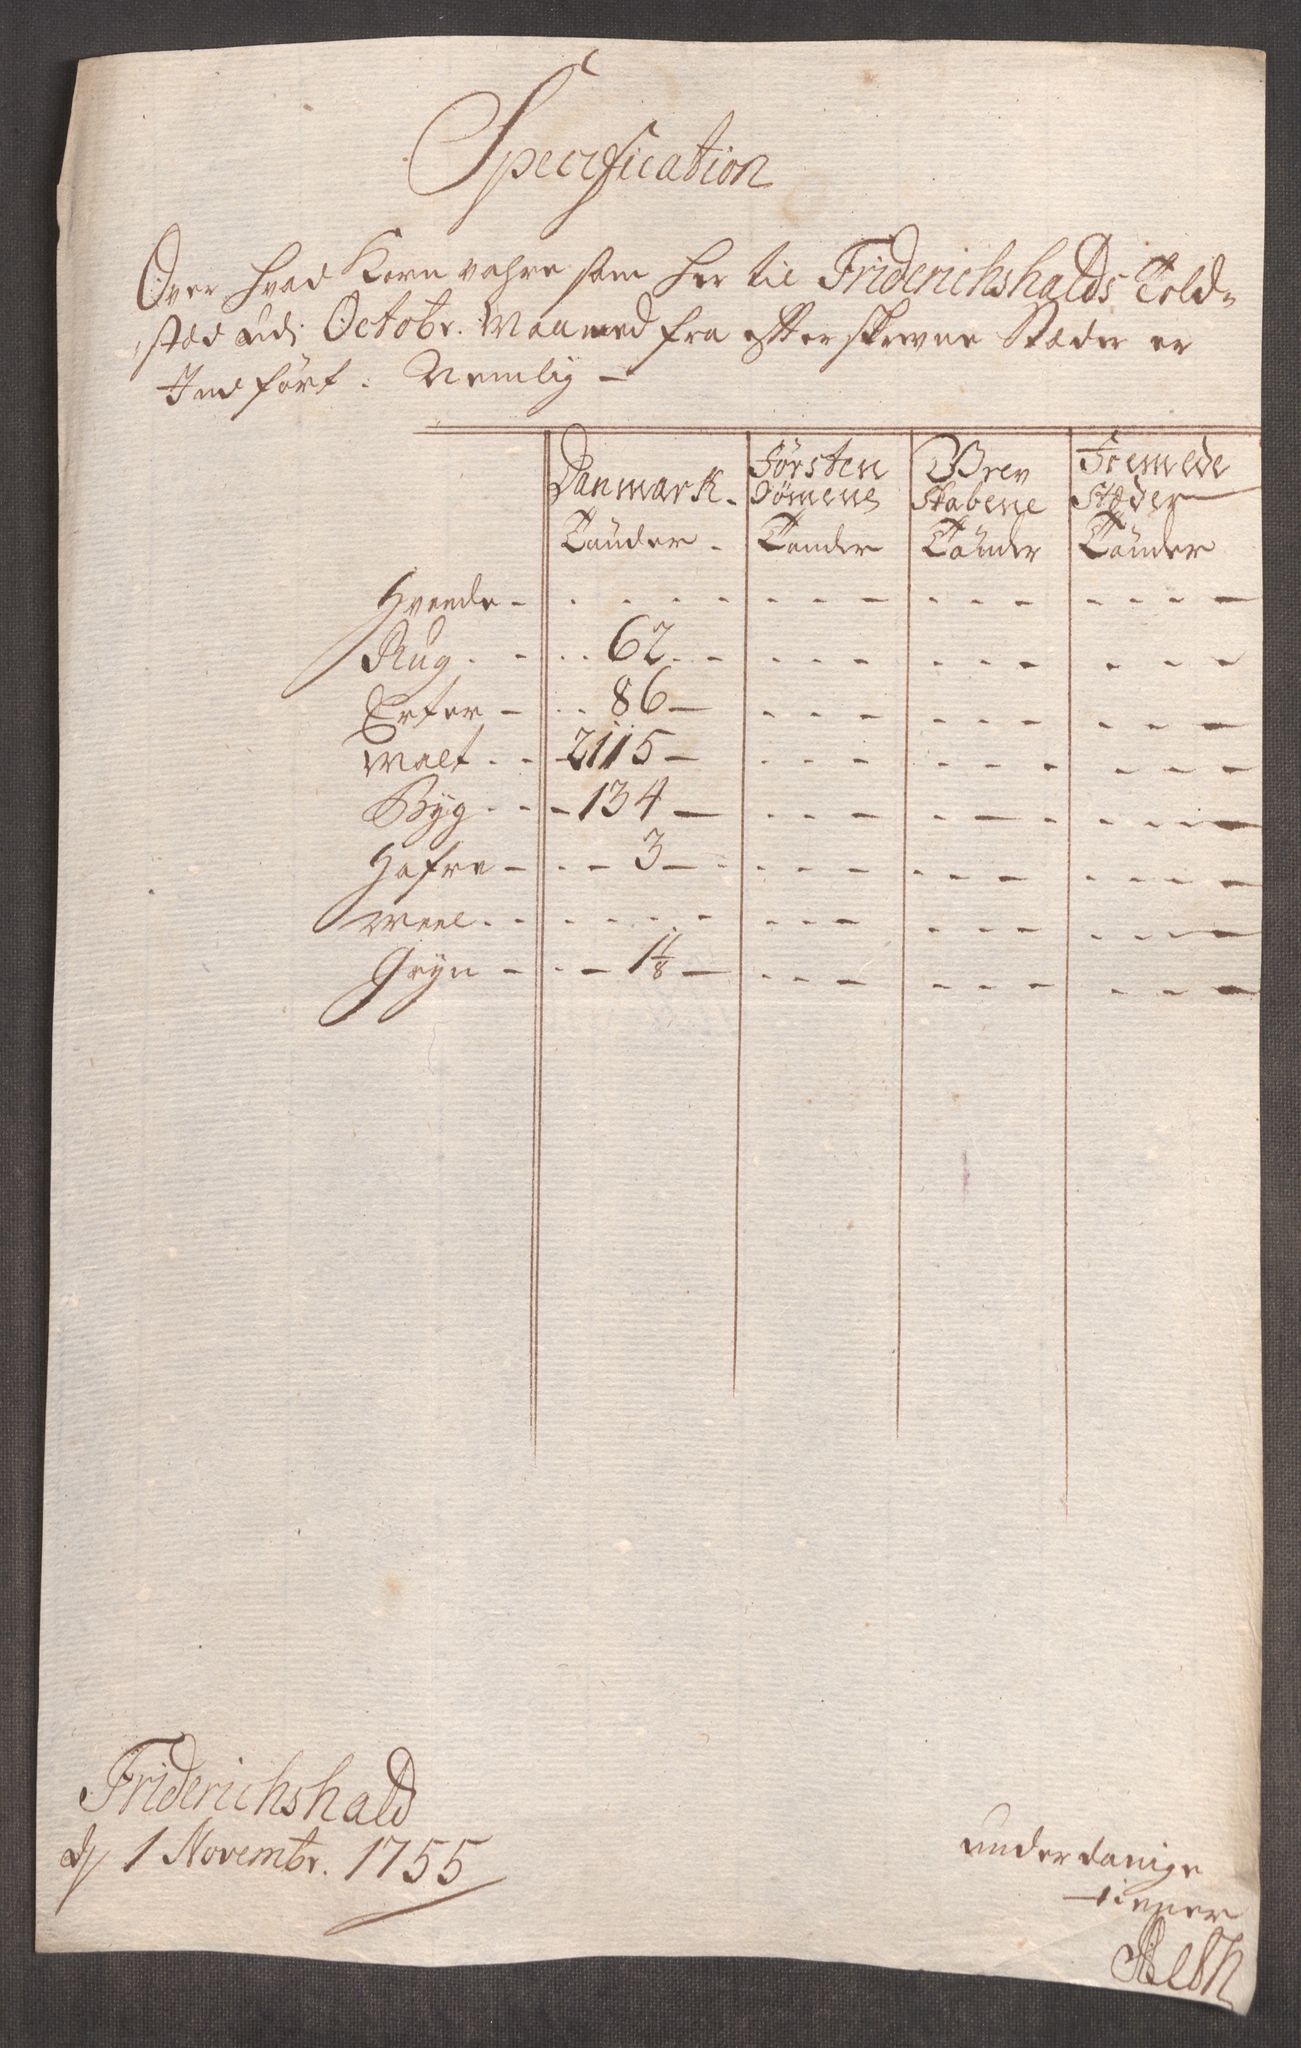 Specification
Over hvad Korn vahre som her til Friderichshalds Told-
stæd udi Octobr. Maaned fra efterskrevne Stæder er
Indført. Nemlig —
Danmark. Førsten Grev Fremede
dømene skabene Stæder
Tønder. Tønder Tønder Tønder
Hveede
Rug 62
Erter 86
Malt 2115
Byg 134
Hafre 3
Meel
Gryn 1 1/8
Friderichshald
d 1 Novembr. 1755
underdanige
tienner